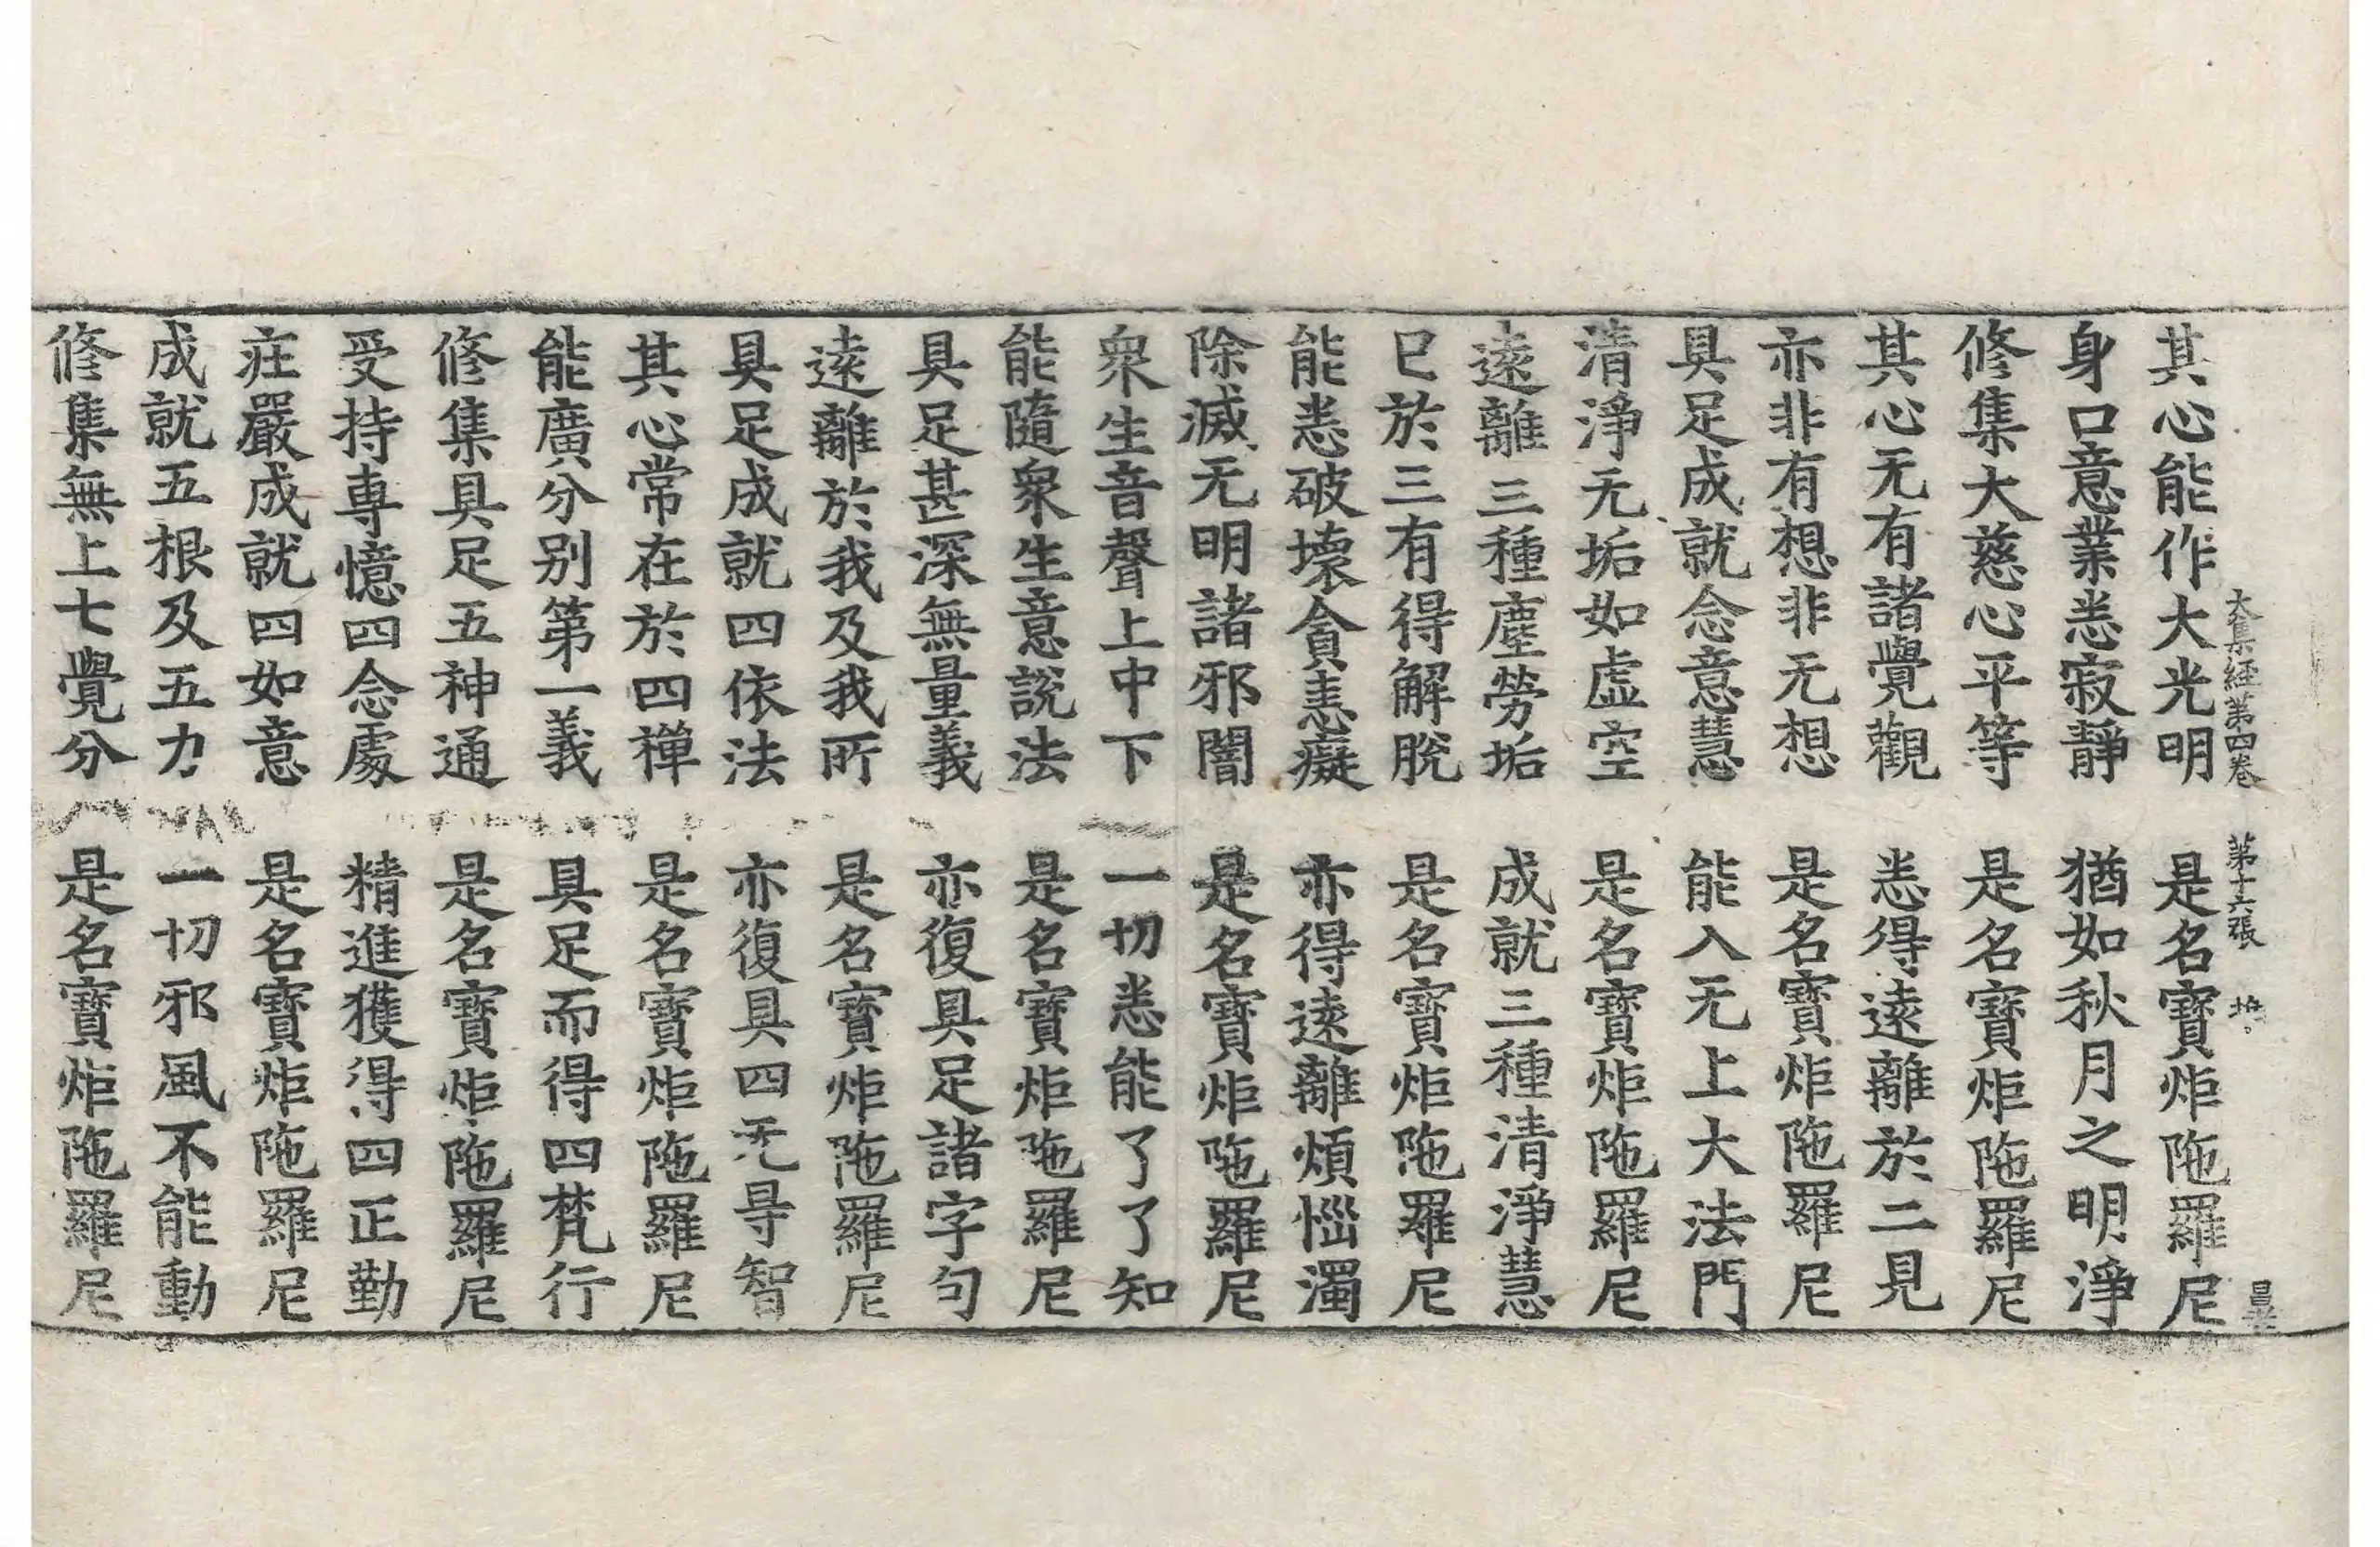 大集經第四卷　第十六張
其心能作大光明　是名寶炬陁羅尼
身口意業悉寂靜　猶如秋月之明淨
修集大慈心平等　是名寶炬陁羅尼
其心无有諸覺觀　悉得遠離於二見
亦非有想非无想　是名寶炬陁羅尼
具足成就念意慧　能入无上大法門
清淨无垢如虛空　是名寶炬陁羅尼
遠離三種塵勞垢　成就三種清淨慧
已於三有得解脫　是名寶炬陁羅尼
能悉破壞貪恚癡　亦得遠離煩惱濁
除滅无明諸邪闇　是名寶炬陁羅尼
衆生音聲上中下　一切悉能了了知
能隨衆生意說法　是名寶炬陁羅尼
具足甚深無量義　亦復具足諸字句
遠離於我及我所　是名寶炬陁羅尼
具足成就四依法　亦復具四无㝵智
其心常在於四禪　是名寶炬陁羅尼
能廣分别第一義　具足而得四梵行
修集具足五神通　是名寶炬陁羅尼
受持專憶四念處　精進獲得四正勤
莊嚴成就四如意　是名寶炬陁羅尼
成就五根及五力　一切邪風不能動
修集無上七覺分　是名寶炬陁羅尼